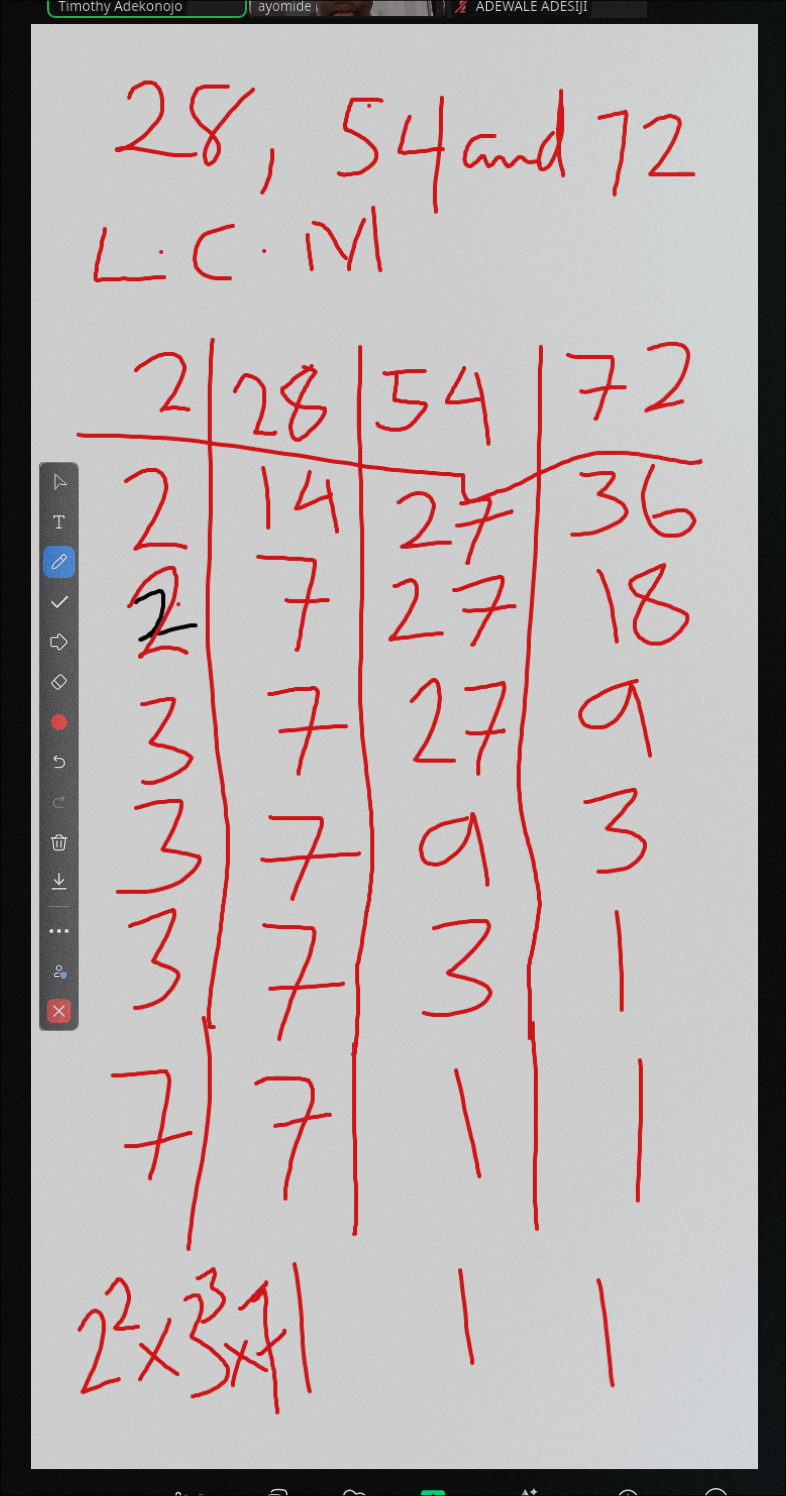 Timothy Adekonojo ayomide ADEWALE ADESIJI
28, 54 and 72
L.C.M
2 28 54 72
2 14 27 36
2 7 27 18
3 7 27 9
3 7 9 3
3 7 3 1
7 7 1 1
2² x 3³ x 7 1 1 1
T